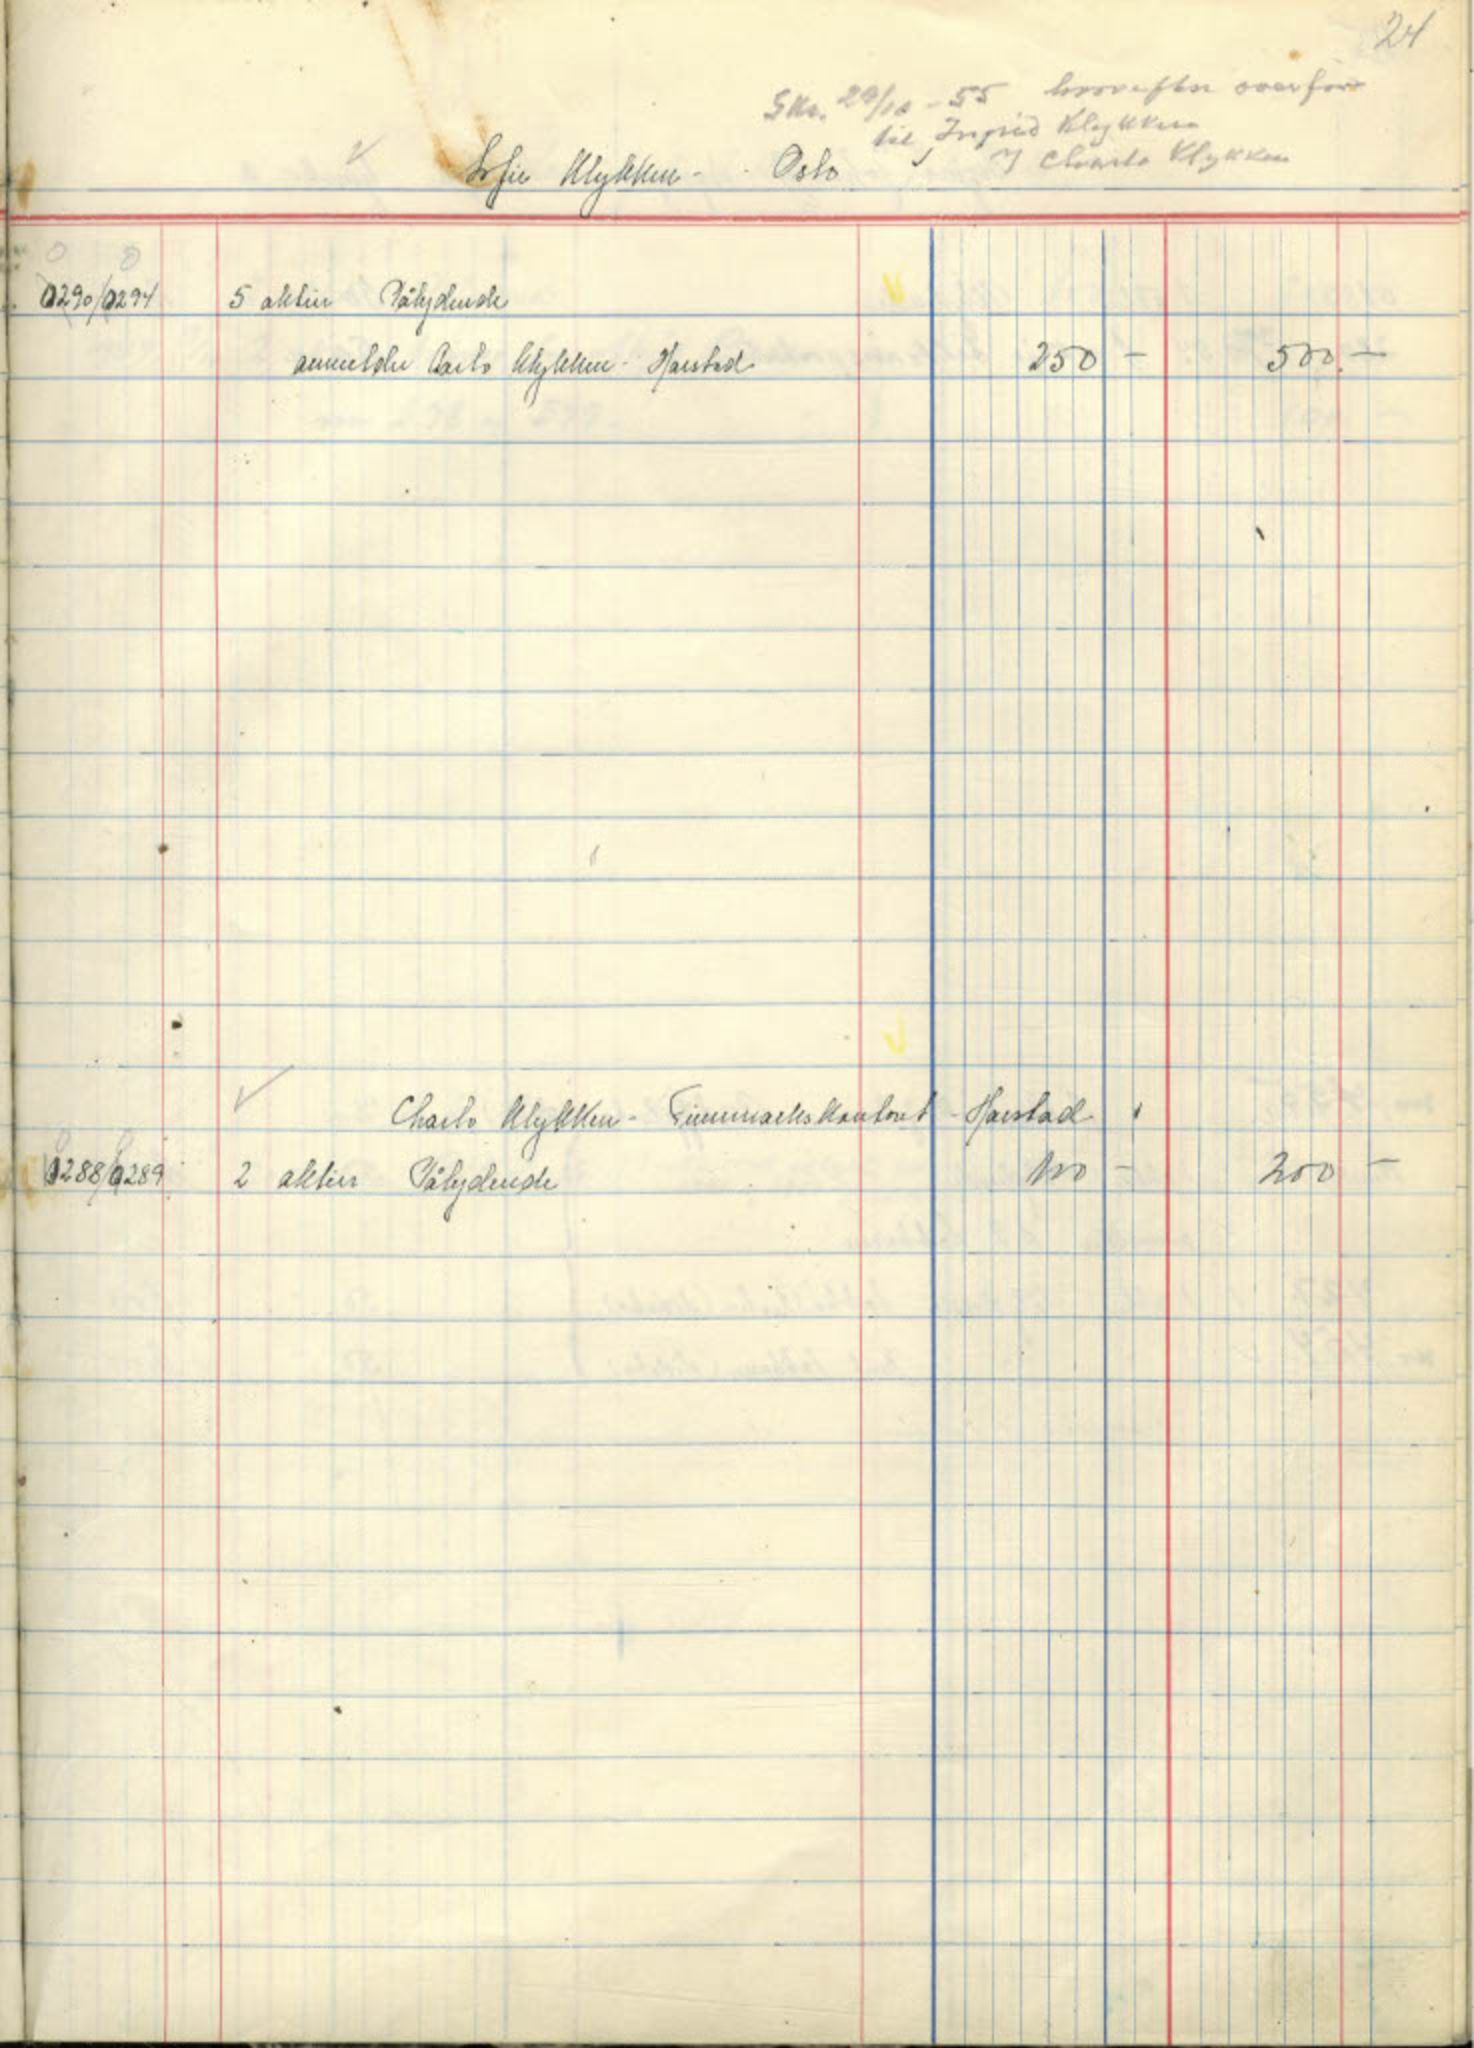 24
Skr. 29/10 - 55 hvorefter overført
til Ingrid Klykken
Charlo Klykken
Sofie Klykken - Oslo
0290/0294 5 aktier Pålydende
anmeldee Carlo Klykken - Harstad 250 - 500.-
Charlo Klykken - Finnmarkskontoret - Harstad
0288/0289 2 aktier Pålydende 100 - 200 -